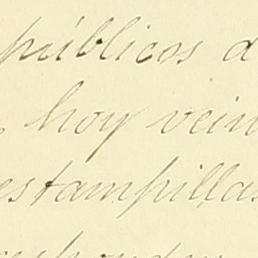 públicos d
, hoy vein
estampillas